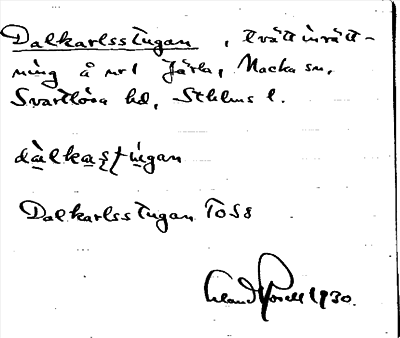 Dalkarlsstugan, tvättinrätt-
ning å nr 1 Järla, Nacka sn,
Svartlösa hd, Sthlms l.
dàlkaştu̇gan
Dalkarlsstugan TOS8
1930.